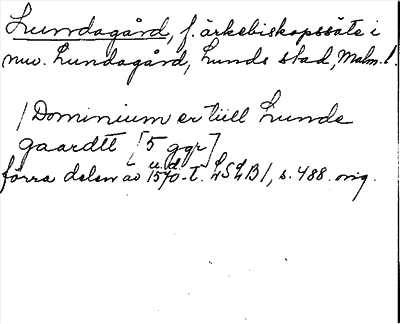 Lundagård, f. ärkebiskopssäte i
nuv. Lundagård, Lunds stad, Malm. l.
/Dominium er tiill Lunde
gaardtt [5 ggr]
u.d.
förra delen av 1570-t. LSLB 1, s. 488. orig.